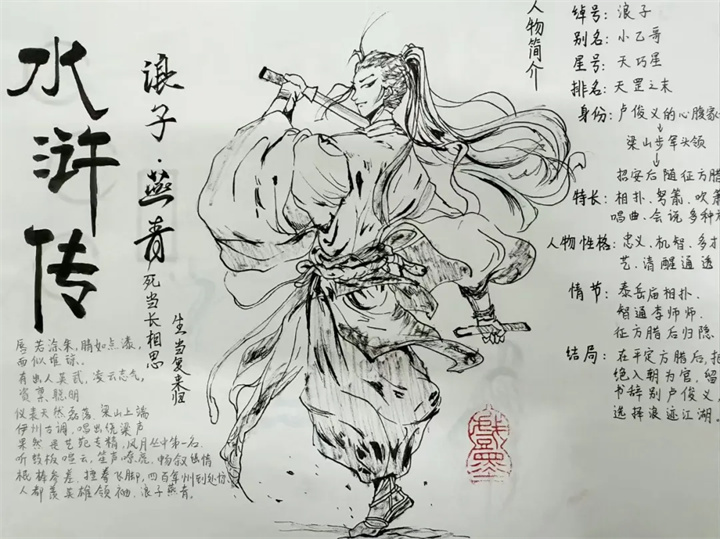 水浒传
浪子·燕青
生当复来归
死当长相思
唇若涂朱,睛如点漆,
面似堆琼。
有出人英武,凌云志气,
资禀聪明
仪表天然磊落,梁山上端
伊州古调,唱出绕梁声
果然是艺苑专精,风月丛中第一名
听鼓板喧云,笙声嘹亮,畅叙幽情
棍棒参差,揎拳飞脚,四百军州到处惊
人都羡英雄领袖,浪子燕青。
人物简介
绰号:浪子
别名:小乙哥
星号:天巧星
排名:天罡之末
身份:卢俊义的心腹家
梁山步军头领
招安后随征方腊
特长:相扑、弩箭、吹箫
唱曲、会说多种
人物性格:忠义、机智、多才
艺、清醒通透
情节:泰岳庙相扑、
智通李师师、
征方腊后归隐
结局:在平定方腊后,拒
绝入朝为官,留
书辞别卢俊义,
选择浪迹江湖。